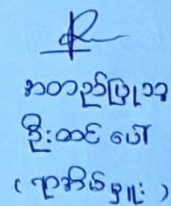 အတည်ပြုသူ
ဦးထင်ပေါ်
(ရာအိမ်မှူး)